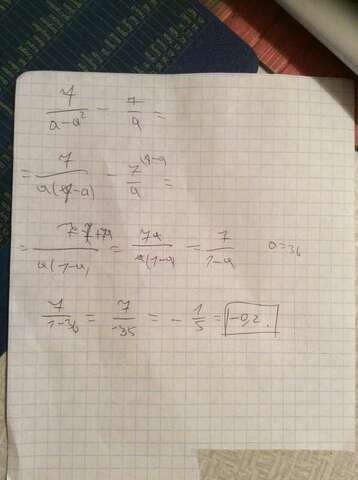 7/(a-a²) - 7/a =
= 7/(a(1-a)) - 7/a (1-a) =
= (7-7+7a)/(a(1-a) = 7a/(a(1-a) = 7/(1-a) a=36
7/(1-36) = 7/-35 = - 1/5 = -0,2.